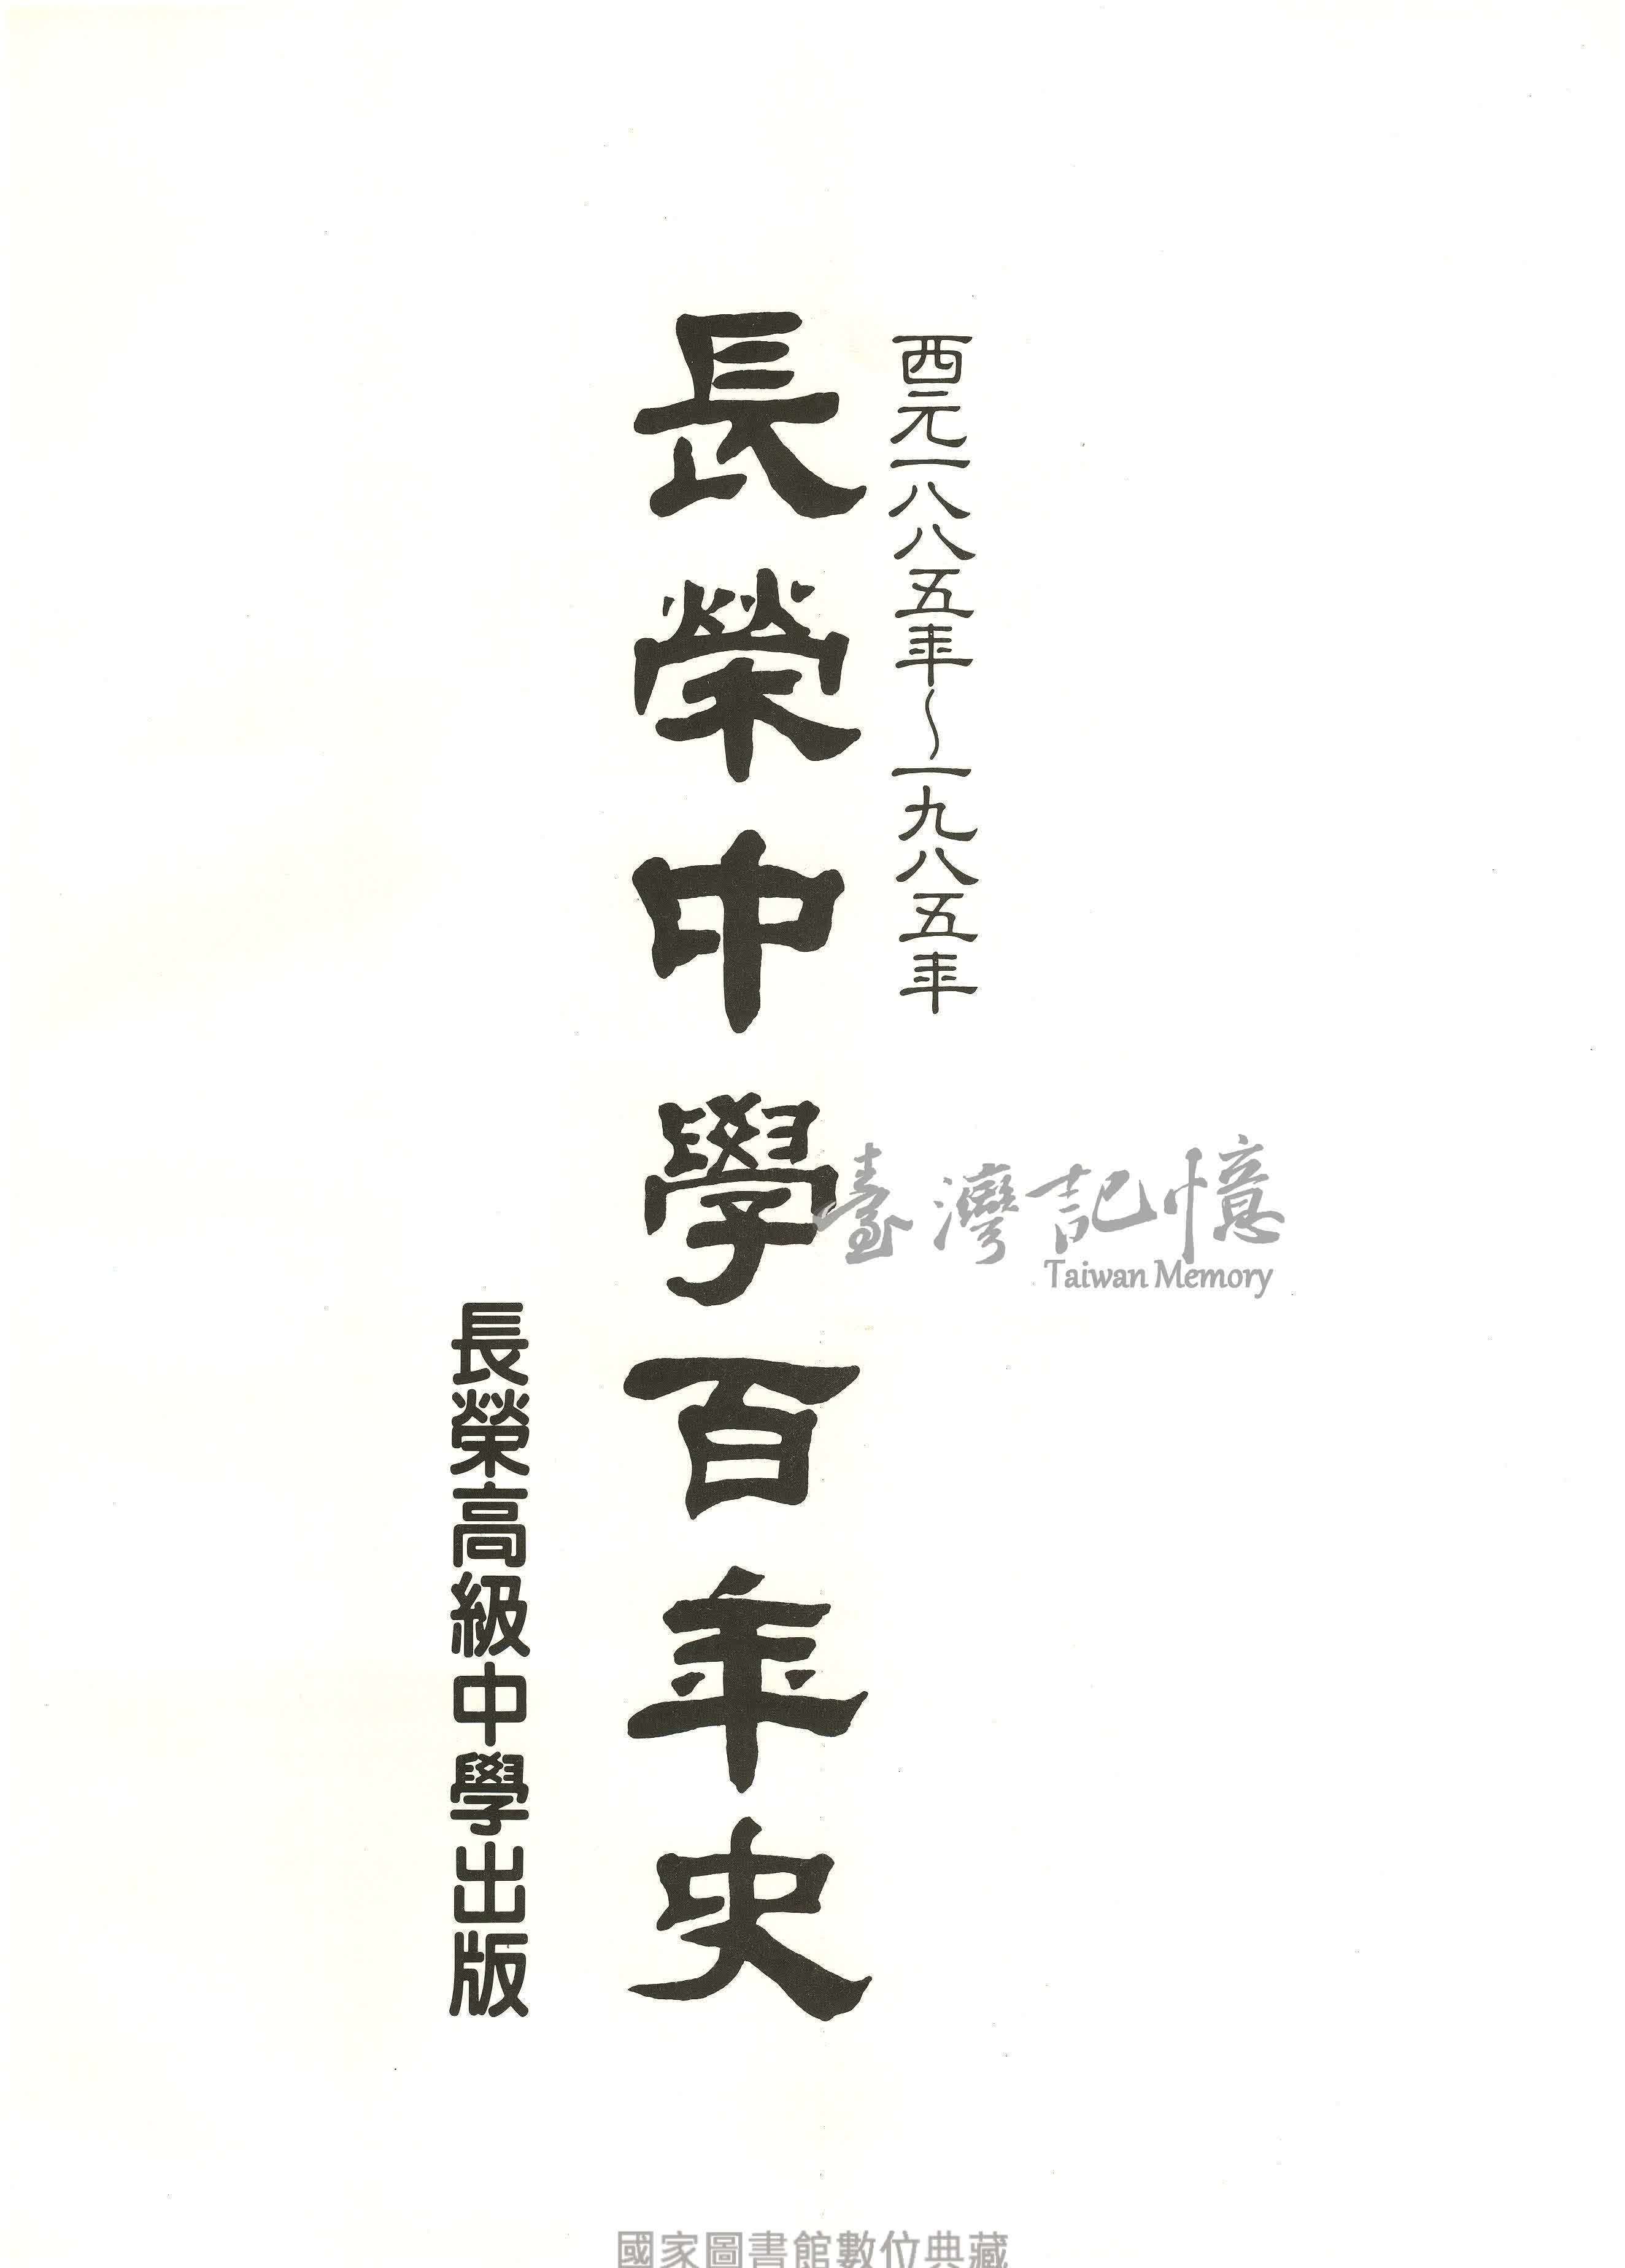 西元一八八五年～一九八五年
長榮中學百年史
長榮高級中學出版
臺灣記憶
Taiwan Memory
國家圖書館數位典藏